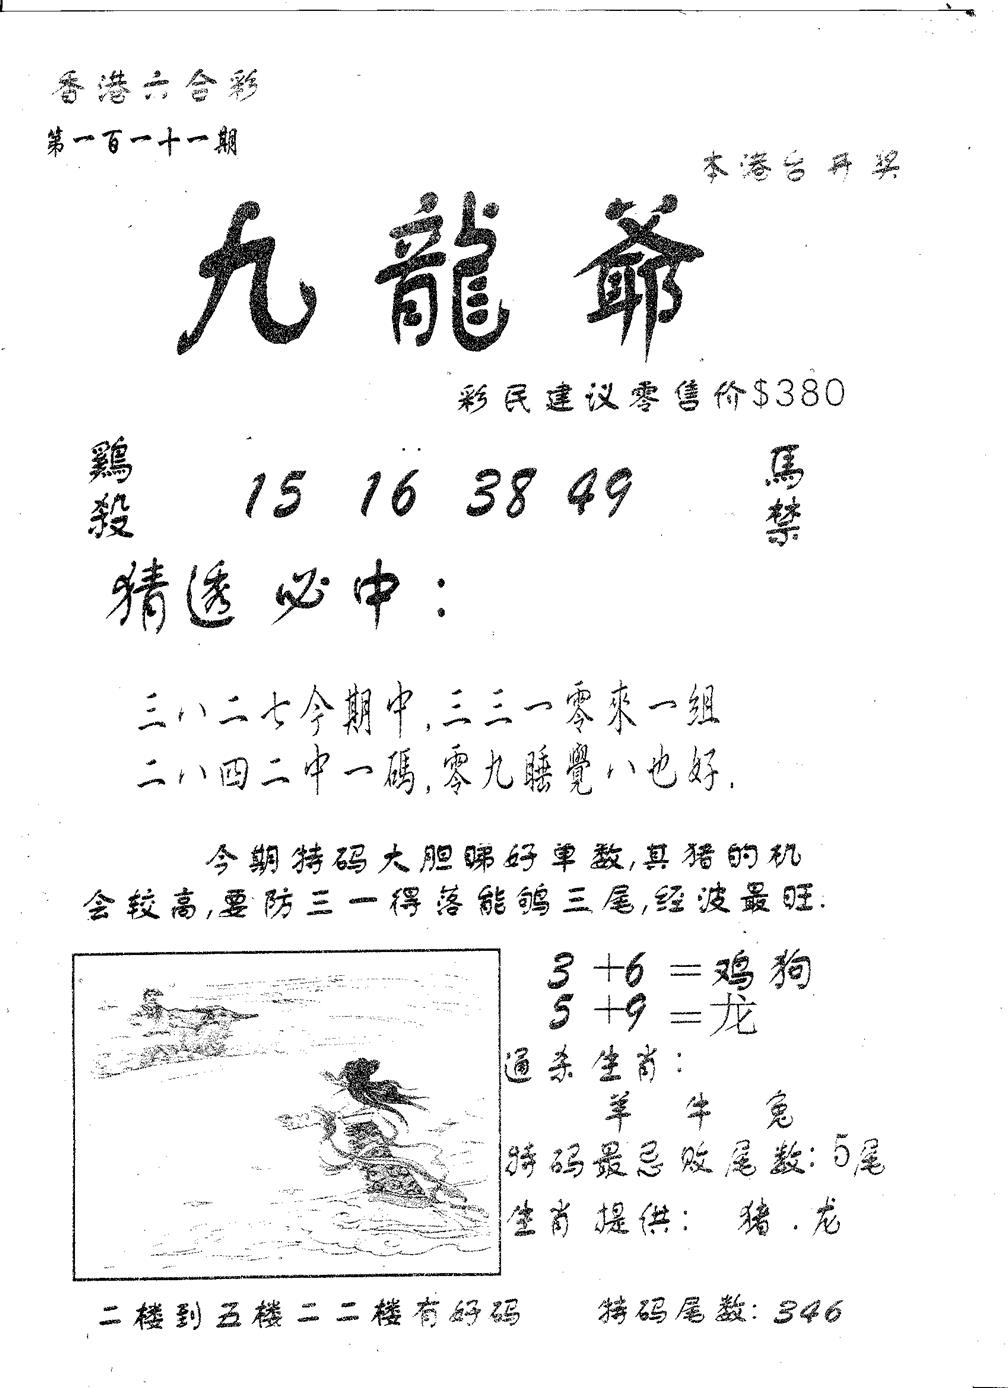 香港六合彩
第一百一十一期
本港台开奖
九龍爺
彩民建议零售价$380
鷄殺 15 16 38 49 馬禁
猜透必中：
三八二七今期中,三三一零來一組
二八四二中一碼,零九睡覺八也好.
今期特码大胆睇好单数,其猪的机
会较高,要防三一得落能鸲三尾,经波最旺.
3+6=鸡狗
5+9=龙
通杀生肖：
羊 牛 兔
特码最忌败尾数：5尾
生肖提供： 猪.龙
二楼到五楼二二楼有好码 特码尾数：346